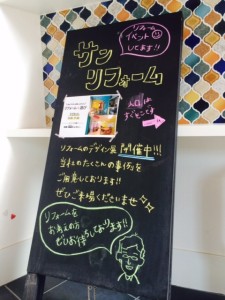 リフォーム
イベント
してます!!
サン
リフォーム
入口は
すぐそこです
リフォームのデザイン展 開催中!!!
当社のたくさんの事例を
ご用意しております!
ぜひご来場くださいませ
リフォームを
お考えの方
ぜひお待ちしております!!